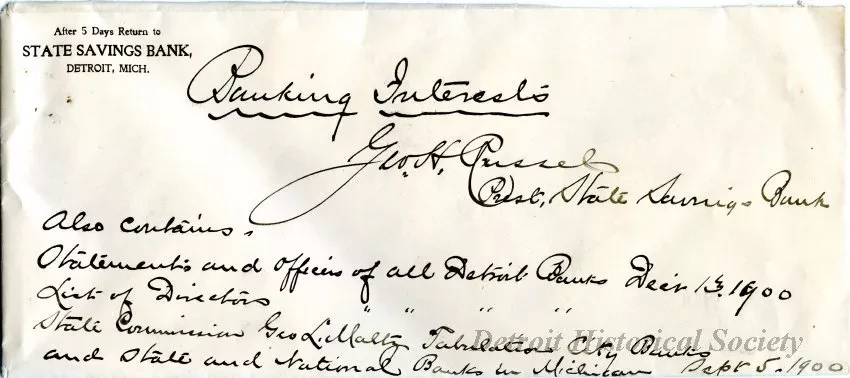 After 5 Days Return to
STATE SAVINGS BANK,
DETROIT, MICH.
Banking Interests
Geo. H. Russel
Prest, State Savings Bank
Also contains.
Statements and officers of all Detroit Banks Decr 1900
List of Directors " " " "
State Commission Geo L. Maltz Tabulation City Banks
and State and National Banks in Michigan Sept 5, 1900
Detroit Historical Society